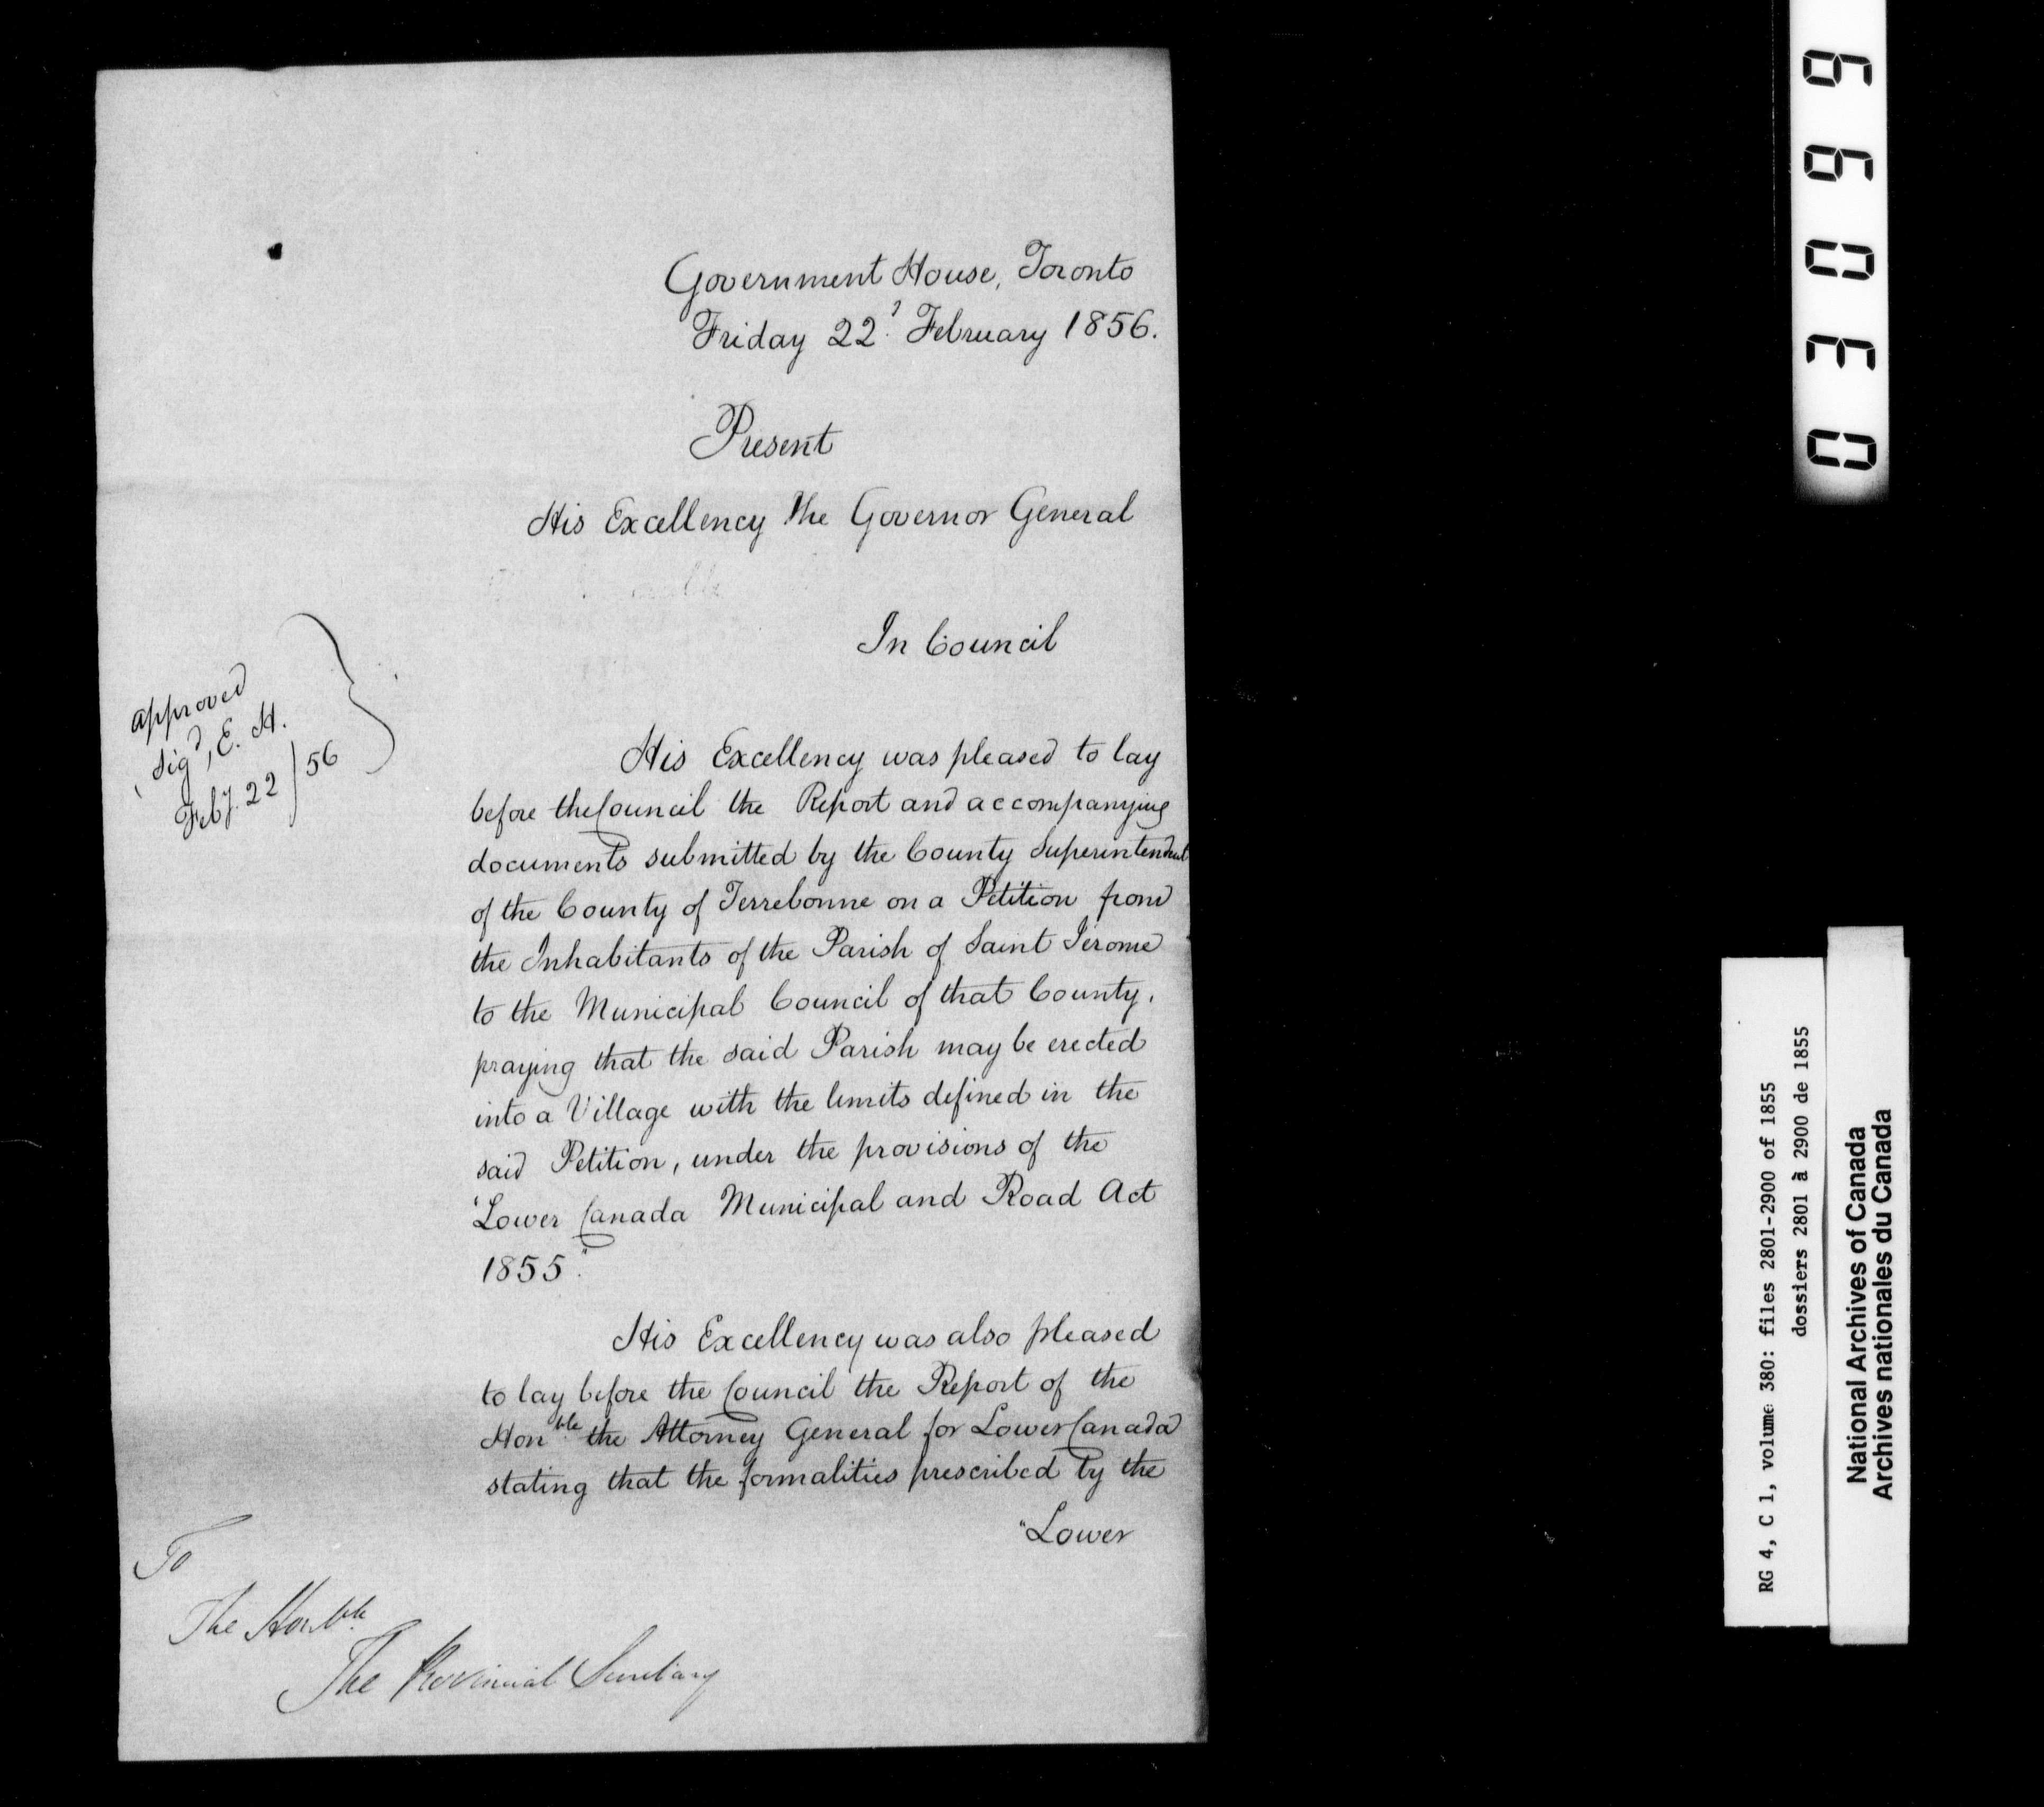 Government House, Toronto
Friday 22d February 1856.
Present
His Excellency the Governor General
In Council
approved
Sigd, E. H.
Feby. 22/56
His Excellency was pleased to lay
before the Council the Report and accompanying
documents submitted by the County Superintendent
of the County of Terrebonne on a Petition from
the Inhabitants of the Parish of Saint Jerome
to the Municipal Council of that County,
praying that the said Parish may be erected
into a Village with the limits defined in the
said Petition, under the provisions of the
"Lower Canada Municipal and Road Act
1855."
His Excellency was also pleased
to lay before the Council the Report of the
Honble the Attorney General for Lower Canada
stating that the formalities prescribed by the
"Lower
To
The Honble
The Provincial Secretary
03099
RG 4, C 1, volume 380: files 2801-2900 of 1855
dossiers 2801 à 2900 de 1855
National Archives of Canada
Archives nationales du Canada